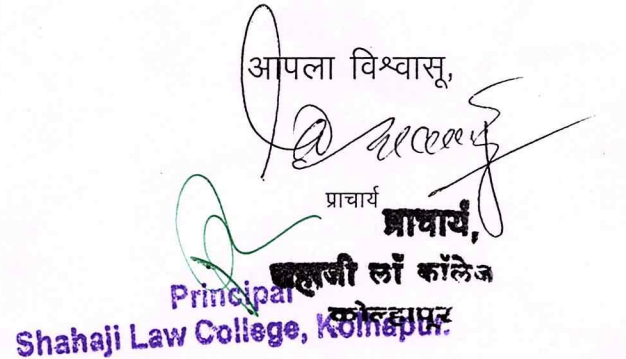 आपला विश्वासू,
प्राचार्य
प्राचार्य,
शहाजी लॉ कॉलेज
कोल्हापूर
Principal
Shahaji Law College, Kolhapur.